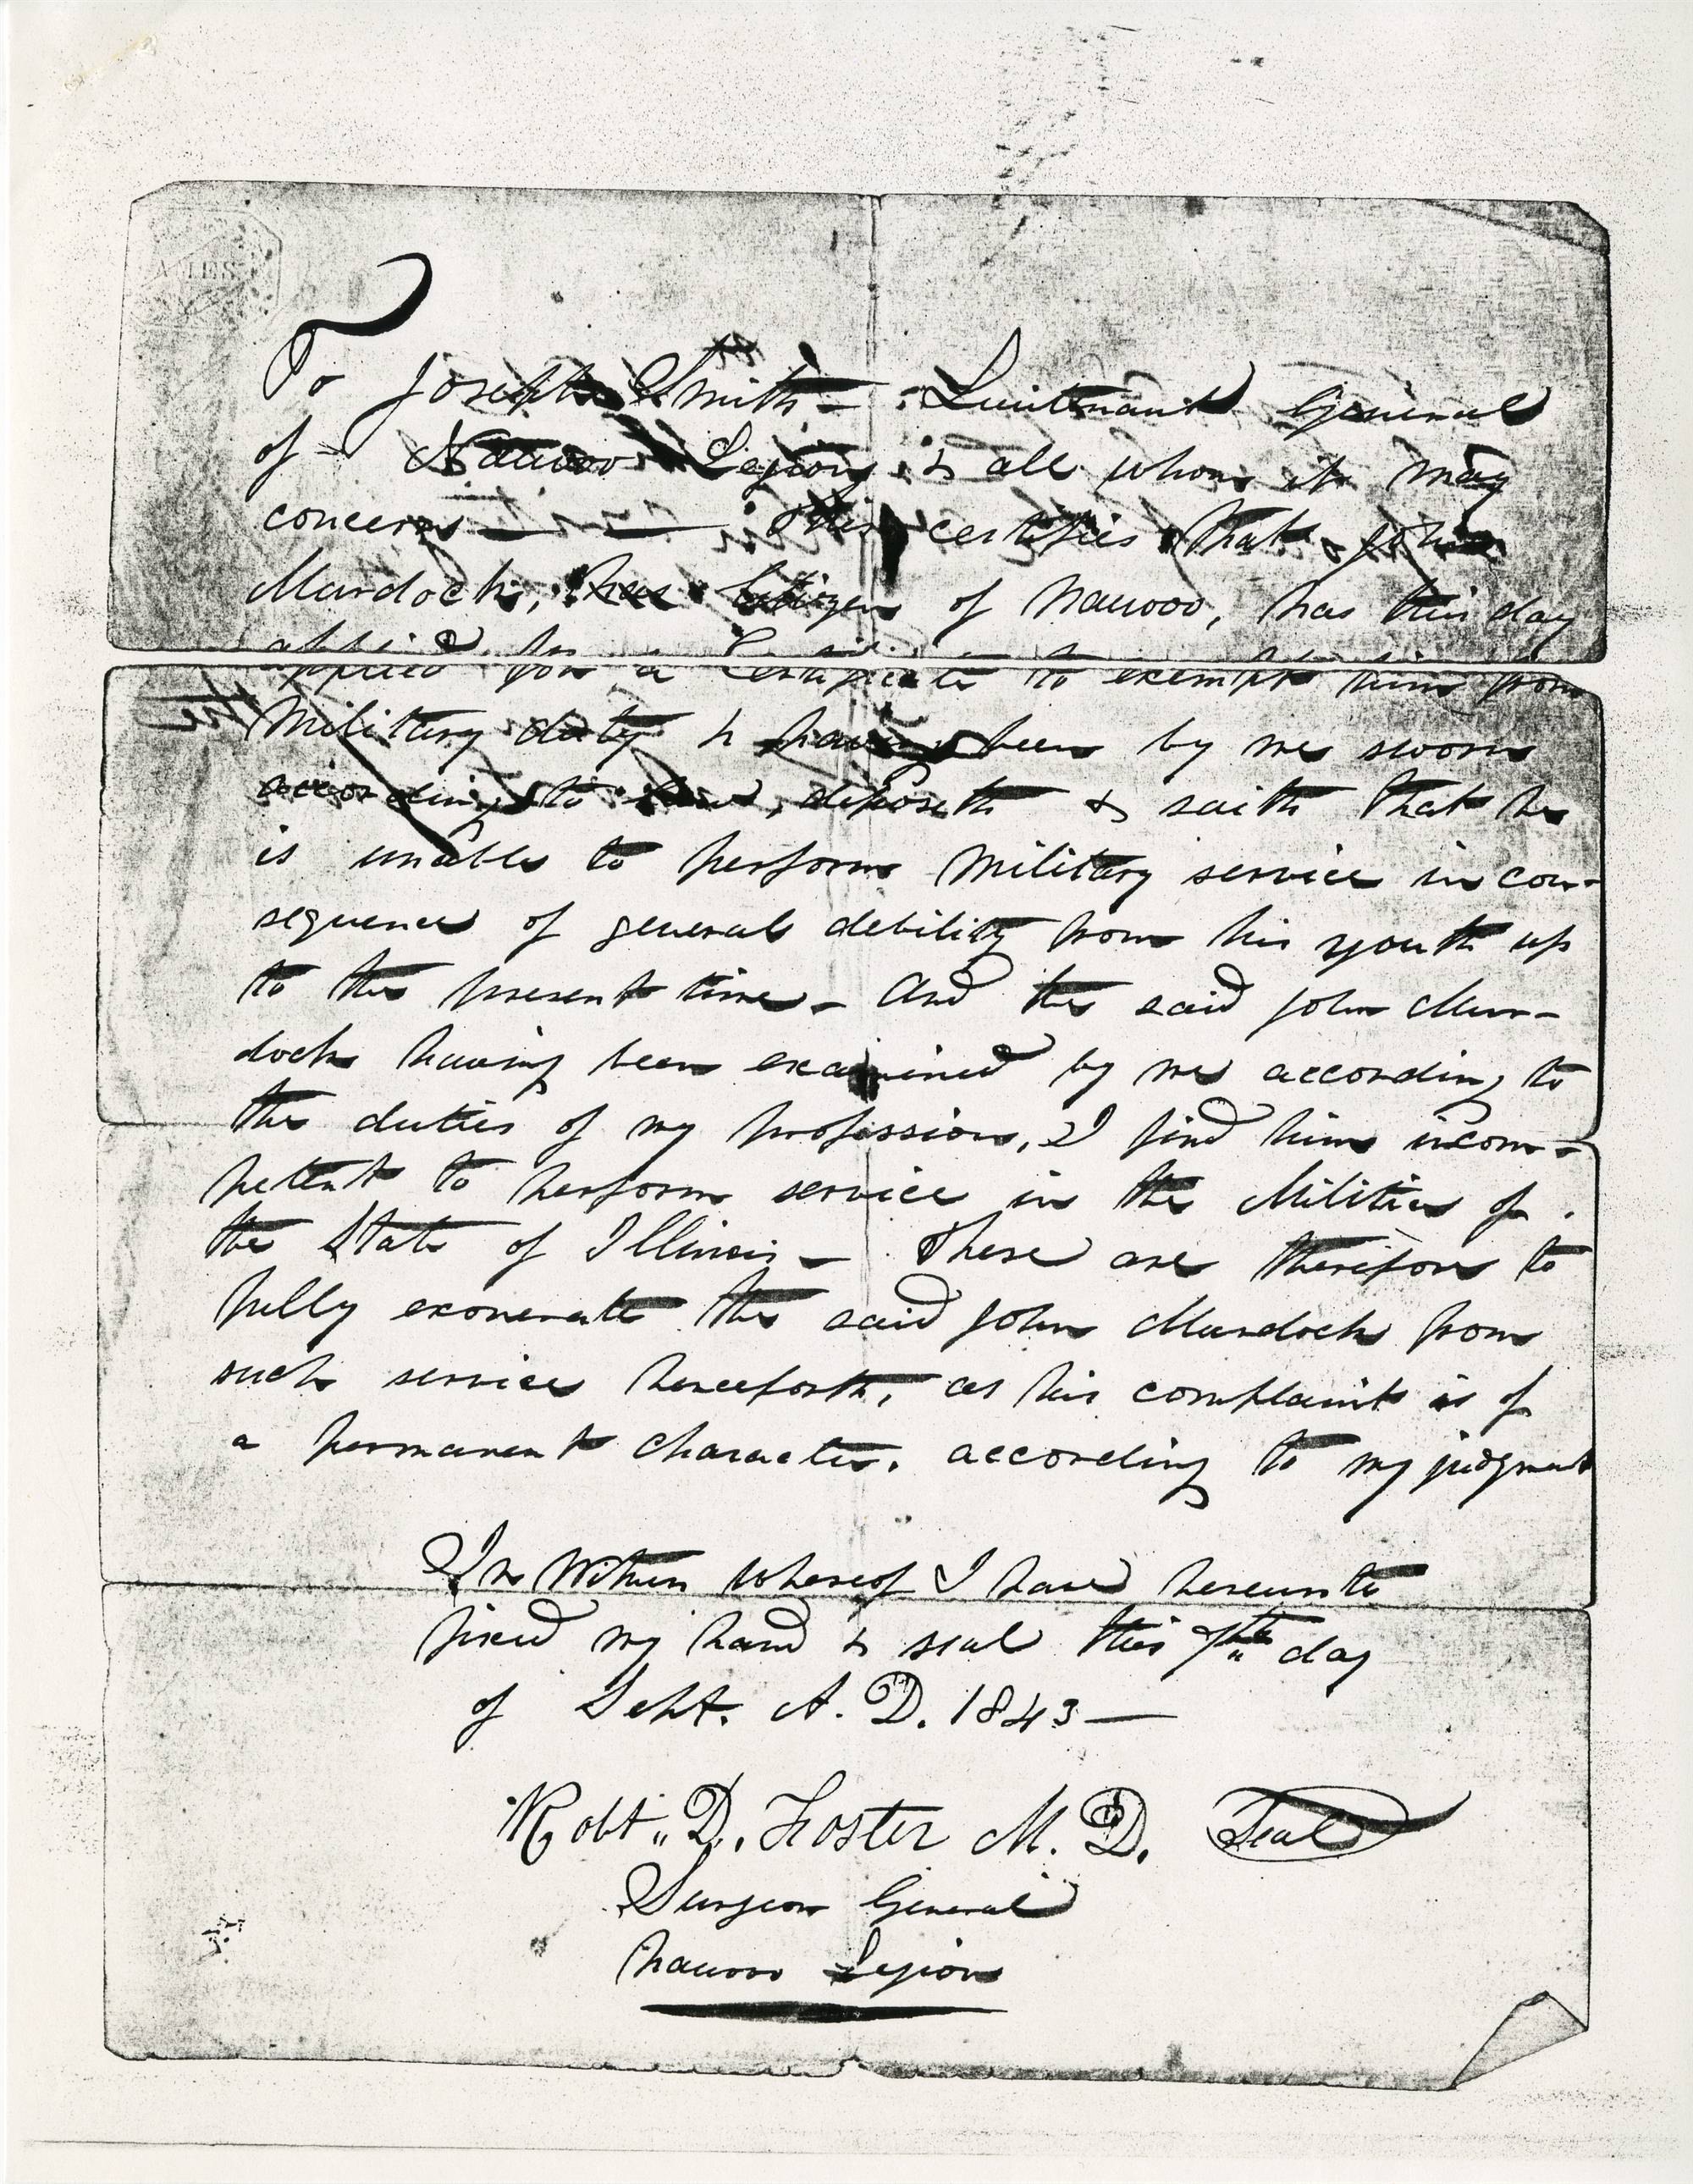 AMES
To Joseph Smith — Lieutenant General
of Nauvoo Legion & all whom it may
concern — — This certifies that John
Murdock, has Citizen of Nauvoo, has this day
applied for a Certificate to exempt him from
Military duty & having been by me sworn
according to law, deposeth & saith that he
is unable to perform Military service in con-
sequence of general debility from his youth up
to the present time — And the said John Mur-
dock having been examined by me according to
the duties of my profession, I find him incom-
petent to perform service in the Militia of
the State of Illinois — These are therefore to
fully exonerate the said John Murdock from
such service henceforth, as his complaint is of
a permanent character, according to my judgment
In Witness whereof I have hereunto
fixed my hand & seal this 7th day
of Sept. A. D. 1843 —
Robt. D. Foster M. D. Seal
Surgeon General
Nauvoo Legion